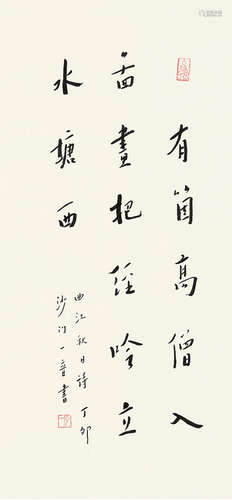 有箇高僧入
啚畫把經吟立
水塘西
曲江秋日詩 丁卯
沙门一音書